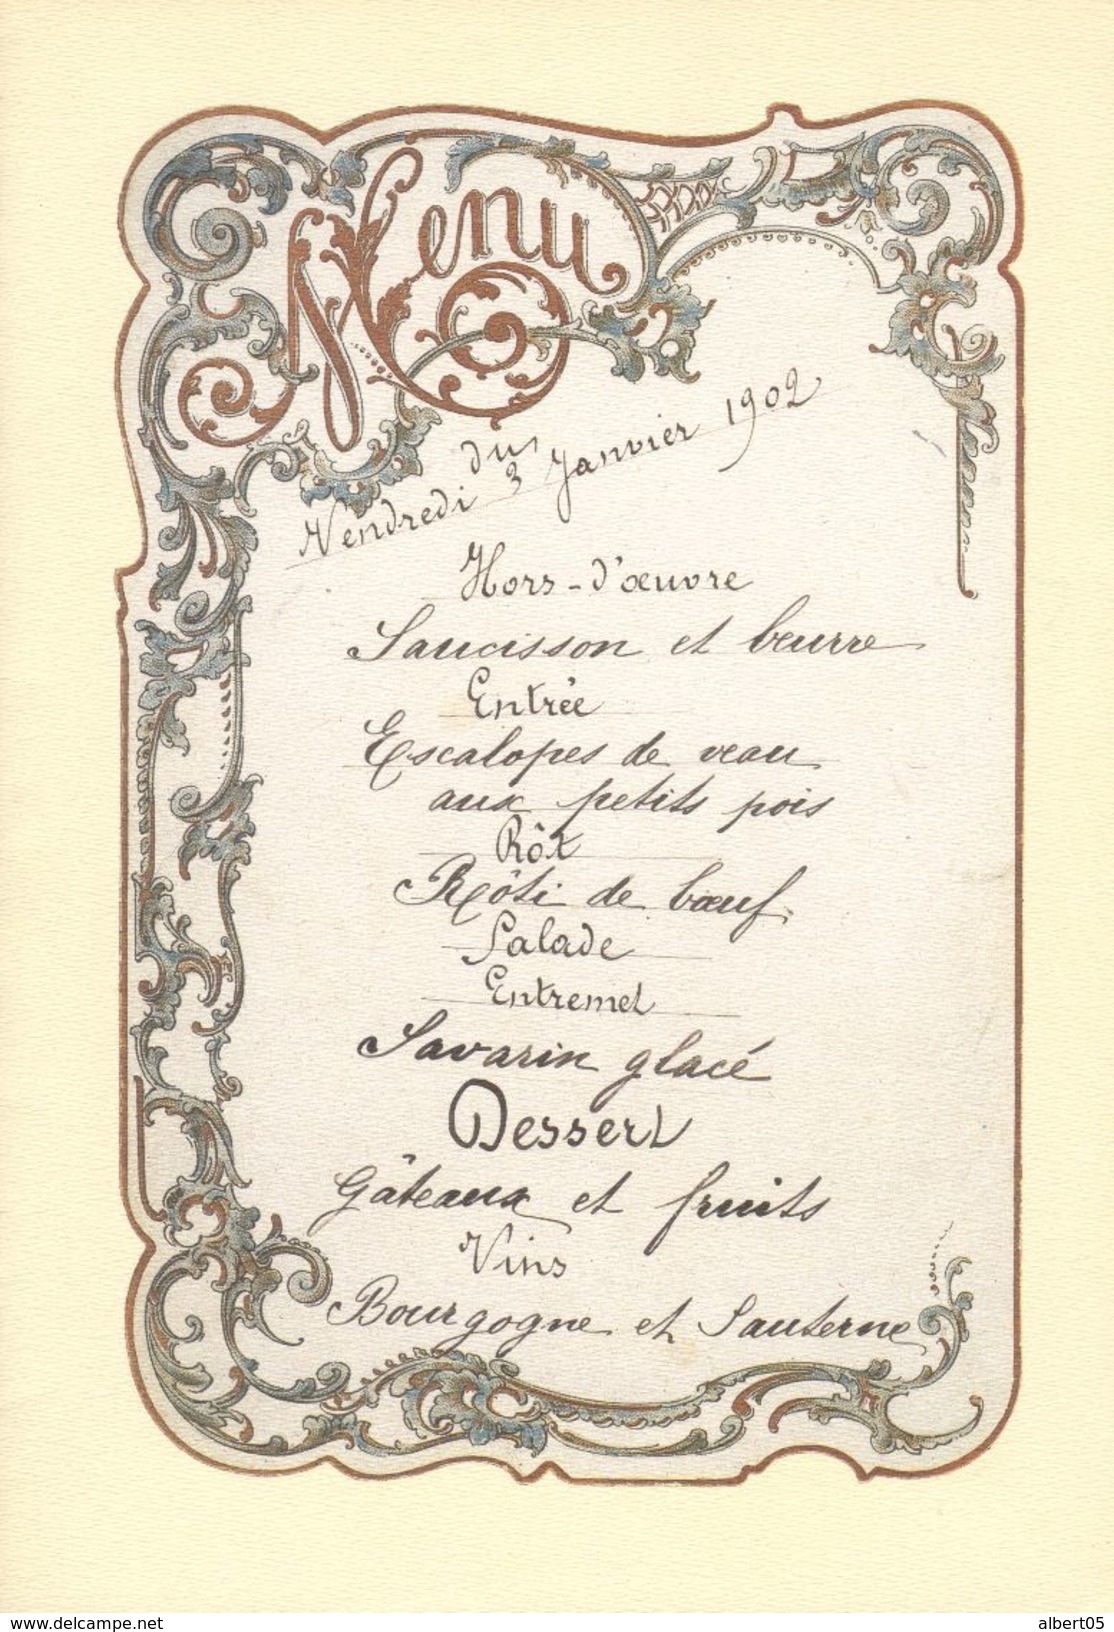 Menu
du
Vendredi 3 Janvier 1902
Hors-d'œuvre
Saucisson et beurre
Entrée
Escalopes de veau
aux petits pois
Rôt
Rôti de bœuf
Salade
Entremet
Savarin glacé
Dessert
Gâteaux et fruits
Vins
Bourgogne et Sauterne
www.delcampe.net
albert05